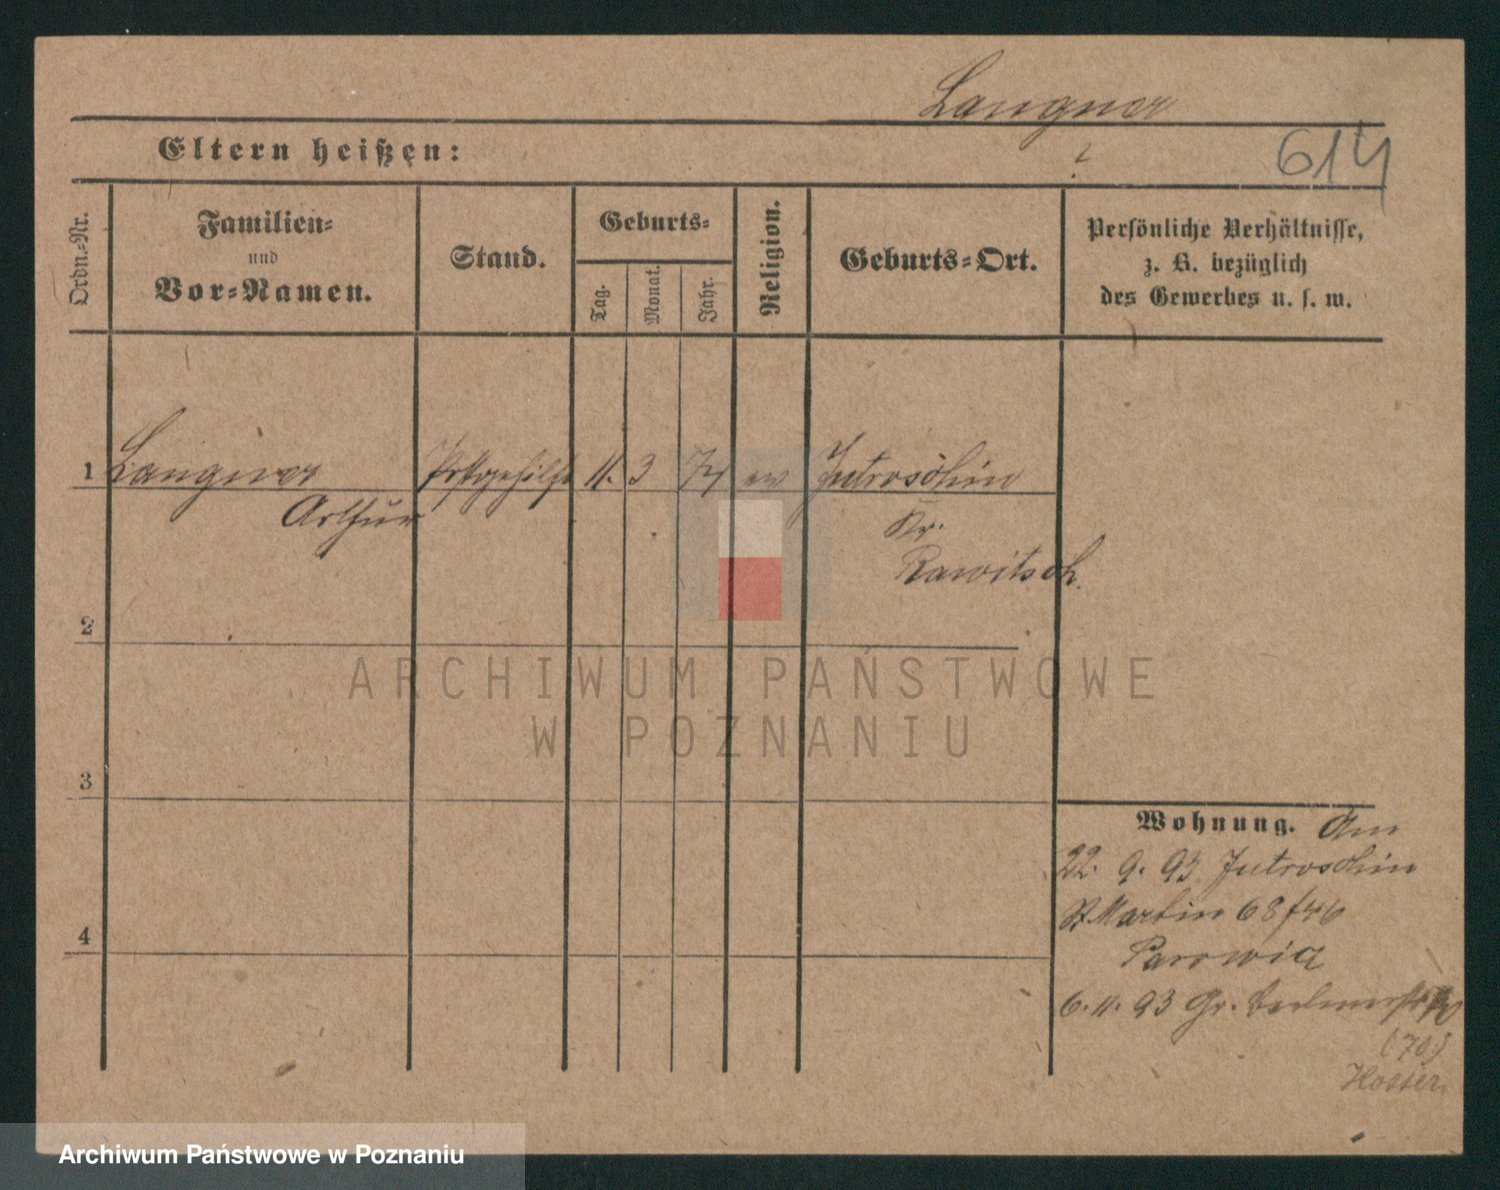 Langner
Eltern heißen: ? 614
Ordn.-Nr.
Familien-
und
Vor-Namen.
Stand.
Geburts-
Tag.
Monat.
Jahr.
Religion.
Geburts-Ort.
Persönliche Verhältnisse,
z. B. bezüglich
des Gewerbes u. s. w.
1 Langner Postgehilfe 11. 3 74 ev Jutroschin
Arthur Kr.
Rawitsch.
2
ARCHIWUM PAŃSTWOWE
W POZNANIU
3
Wohnung. Am
22. 9. 93 Jutroschin
St Martin 68
4
6. 11. 93 Gr.
(70.)
Archiwum Państwowe w Poznaniu